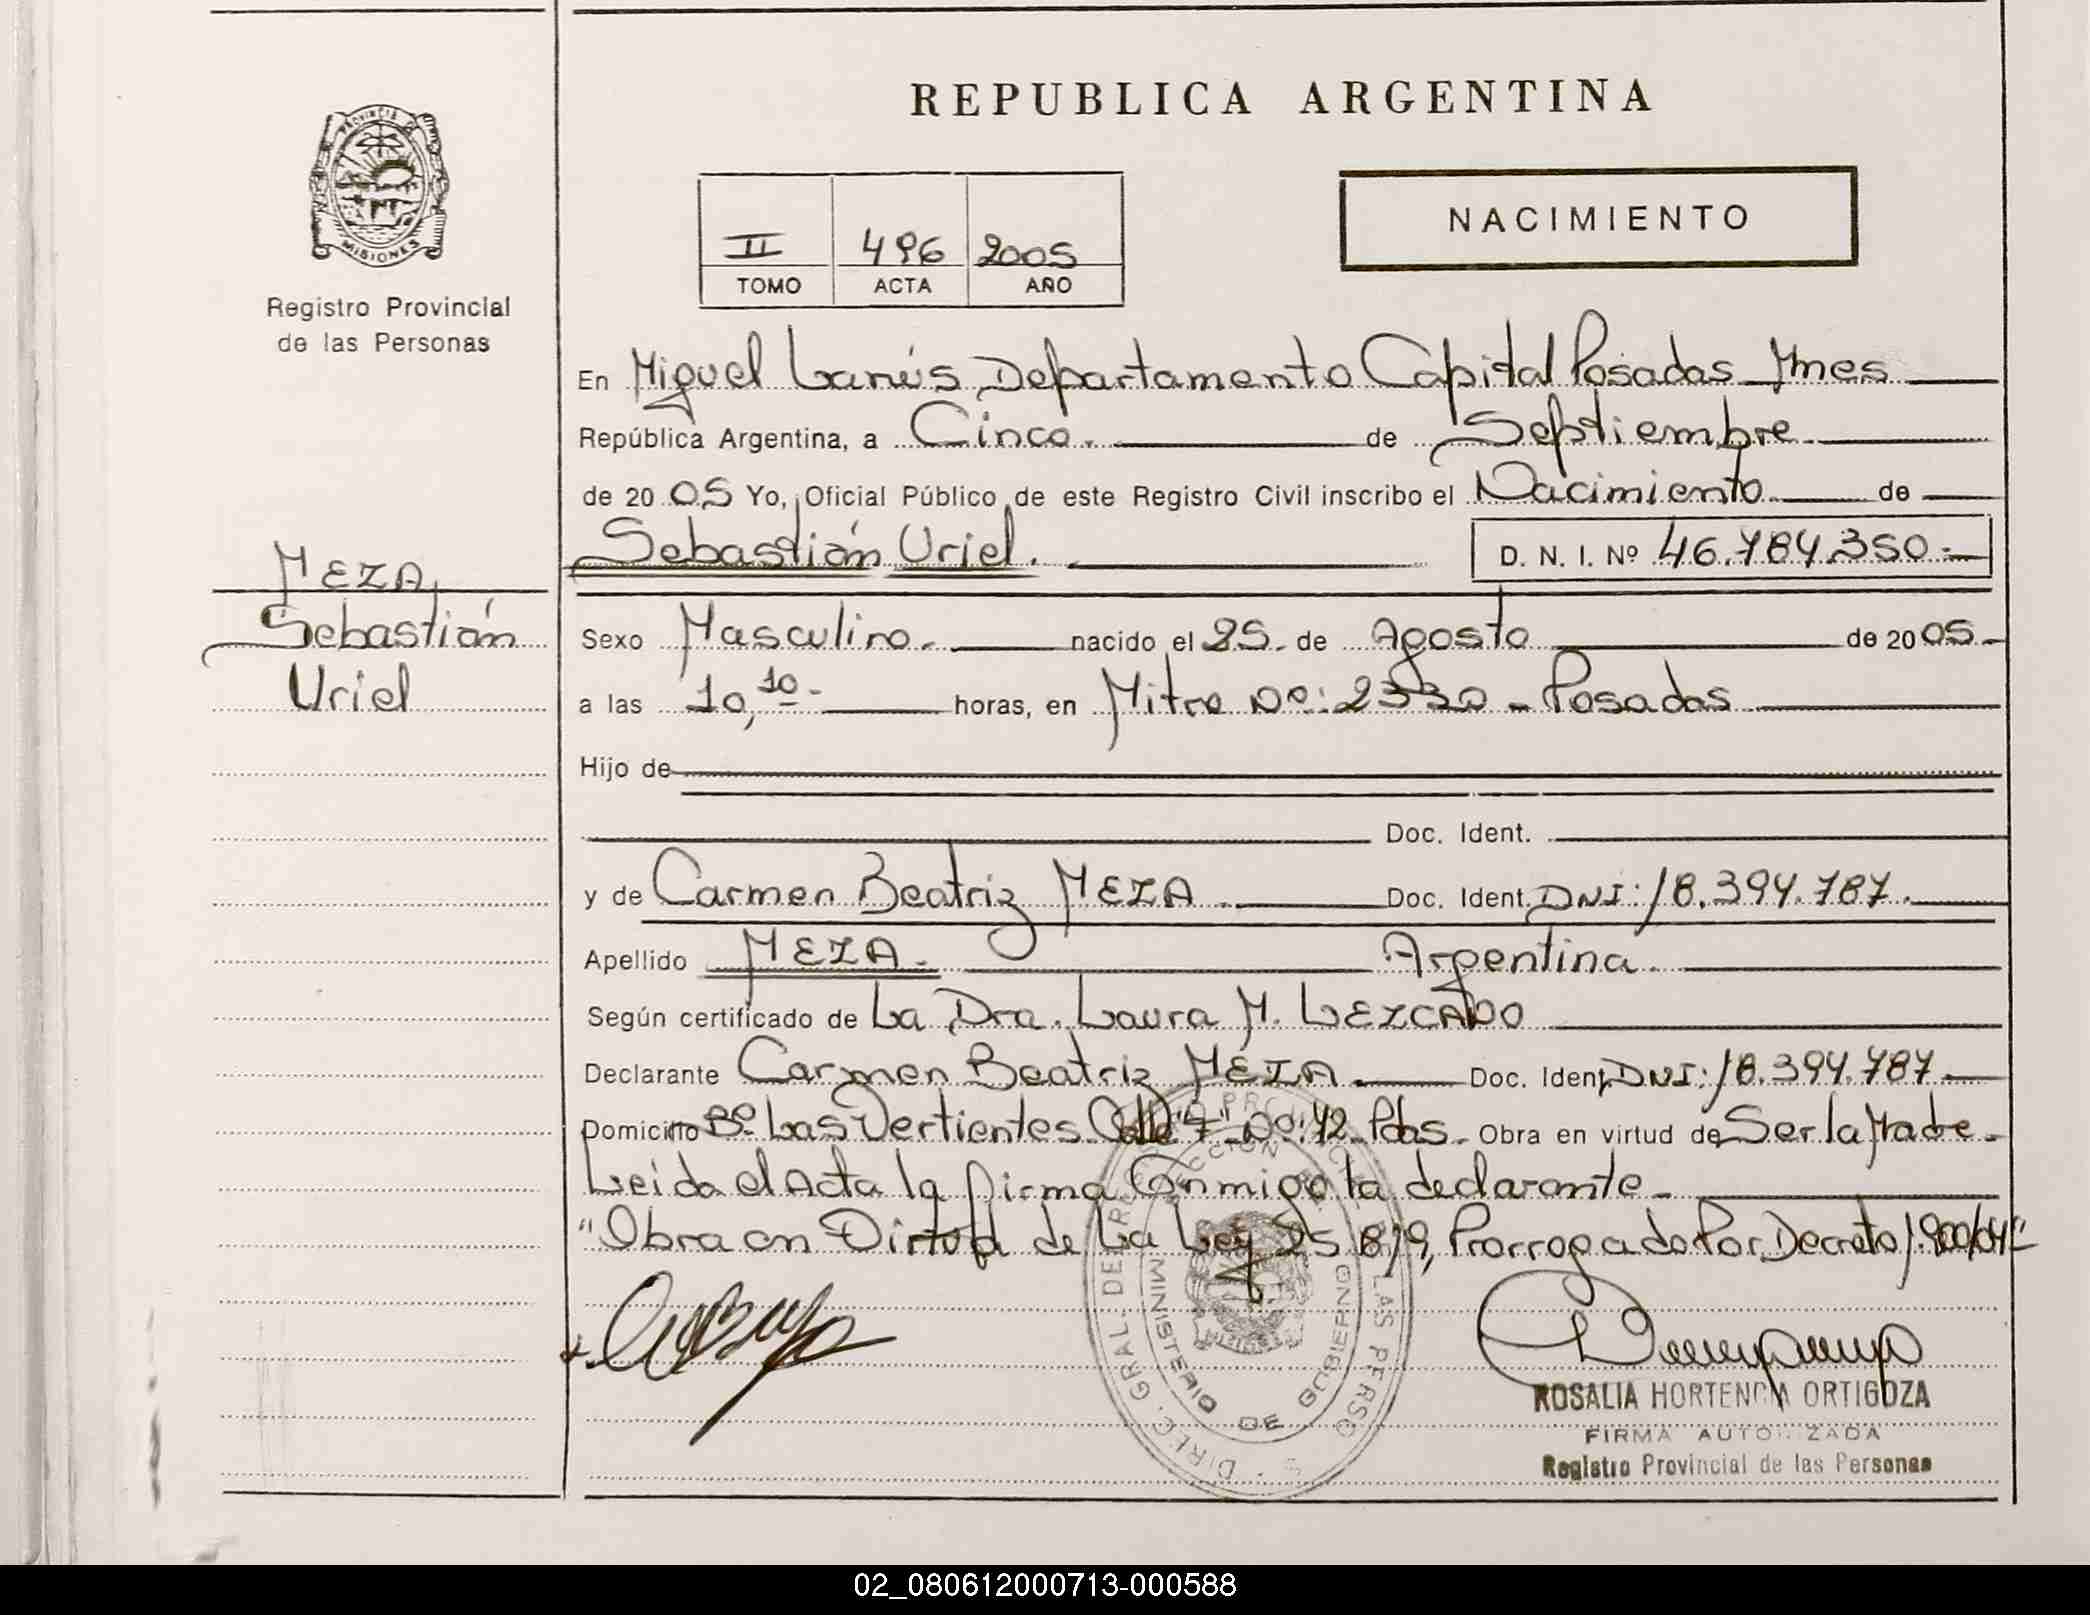 REPUBLICA ARGENTINA
PROVINCIA DE MISIONES
Registro Provincial
de las Personas
II 496 2005
TOMO ACTA AÑO
NACIMIENTO
MEZA
Sebastián
Uriel
En Miguel Lanús Departamento Capital Posadas Mnes
República Argentina, a Cinco. de Septiembre
de 20 05 Yo, Oficial Público de este Registro Civil inscribo el Nacimiento de
Sebastián Uriel. D. N. I. Nº 46.784.350.-
Sexo Masculino. nacido el 25. de Agosto de 20 05.-
a las 10,10- horas, en Mitre Nº: 2330 - Posadas
Hijo de
Doc. Ident.
y de Carmen Beatriz MEZA. Doc. Ident. DNI: 18.394.787.
Apellido MEZA. Argentina.
Según certificado de La Dra. Laura M. LEZCANO
Declarante Carmen Beatriz MEZA. Doc. Ident. DNI: 18.394.787.
Domicilio Bº Las Vertientes Calle "7" Nº: 42 Pdas. Obra en virtud de Ser la Madre.
Leida el Acta la firma Conmigo la declarante.
"Obra en Virtud de La Ley 25 819, Prorrogado Por Decreto 1.900/04"-
DIREC. GRAL. DE REG. PROVINCIAL DE LAS PERSONAS
MINISTERIO DE GOBIERNO
ROSALIA HORTENCIA ORTIGOZA
FIRMA AUTORIZADA
Registro Provincial de las Personas
02_080612000713-000588